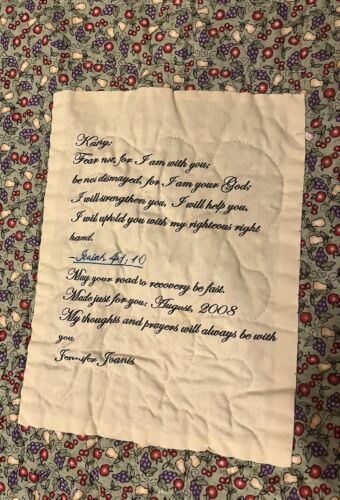 Kary:
Fear not, for I am with you;
be not dismayed, for I am your God;
I will strengthen you, I will help you,
I will uphold you with my righteous right
hand.
-Isaiah 41:10
May your road to recovery be fast.
Made just for you: August, 2008
My thoughts and prayers will always be with
you,
Jennifer Joants